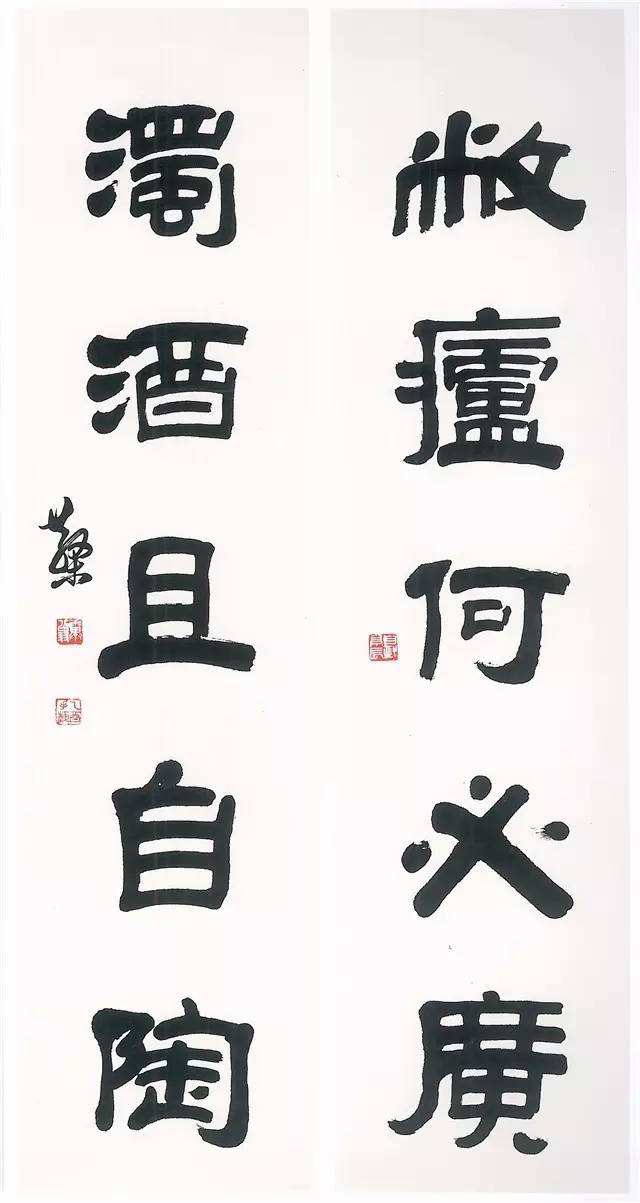 敝廬何必廣
濁酒且自陶